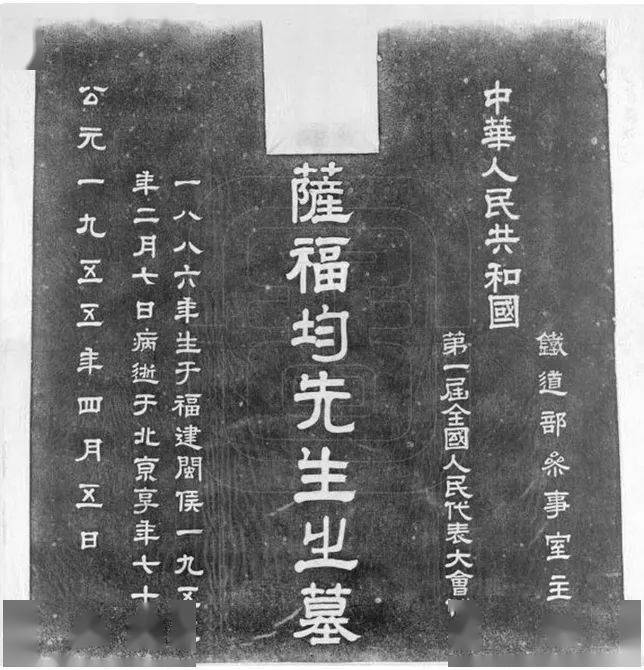 中華人民共和國
鐵道部叅事室主
第一屆全國人民代表大會
薩福均先生之墓
一八八六年生于福建閩侯一九五
年二月七日病逝于北京享年七十
公元一九五五年四月五日